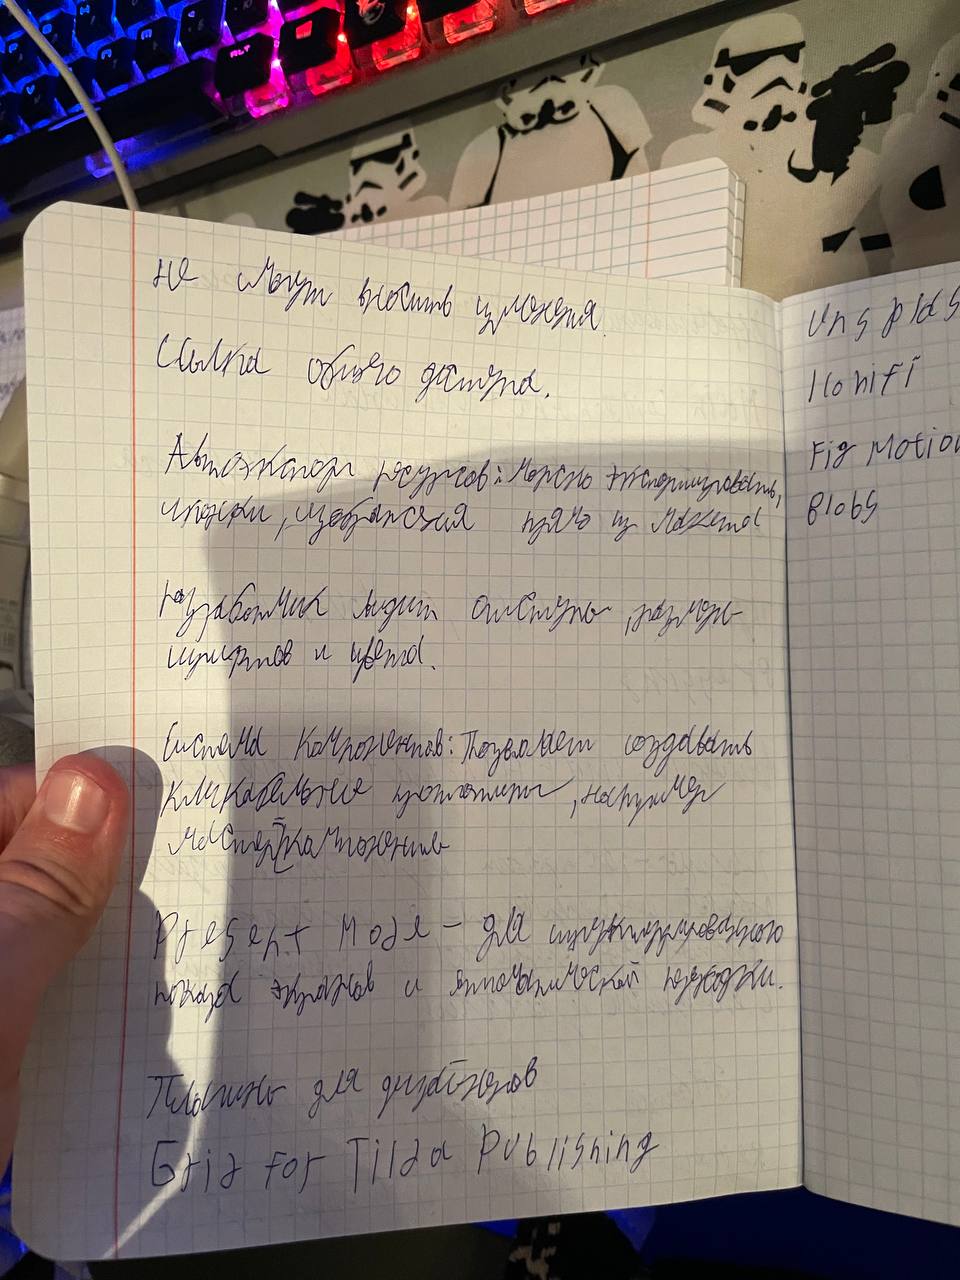 не могут вносить изменения.
Ссылка общего доступа.
Автоэкспорт ресурсов: Можно экспортировать,
иконки, изображения прямо из макета
Разработчик видит отступы, размеры
шрифтов и цвета.
Система компонентов: Позволяет создавать
кликабельные прототипы, например
мастер компоненты
Present Mode - для структурированного
показа экранов и автоматической
Плагины для дизайнеров
Grid for Tilda Publishing
Unsplash
Iconifi
Fig Motion
Blobs